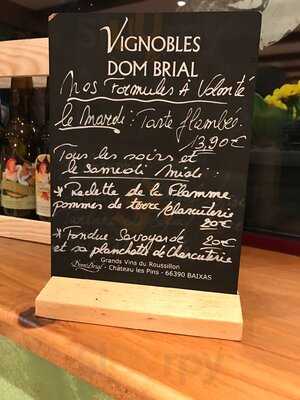 VIGNOBLES
DOM BRIAL
Nos Formules A Volonté
le Mardi : Tarte flambée
13,90€
Tous les soirs et
le Samedi midi :
* Raclette de la Flamme
pommes de terre, charcuterie
20€
* Fondue Savoyarde 20€
et sa planchette de Charcuterie
Grands Vins du Roussillon
Dom Brial - Château les Pins - 66390 BAIXAS